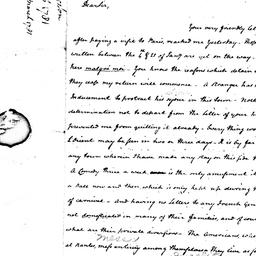 Dear Sir,
Your very friendly let
after paying a visit to Paris, reached me Yesterday. Those
written between the & 21 of Jany are yet on the way.
here malgré moi. You know the reasons which detain
they cease my return will commence. A stranger has
Inducement to protract his sejour in this town. Noth
determination not to depart from the letter of your
prevented me from quitting it already. Every thing wor
L'Orient may be seen in two or three days. It is by far
any town wherein I have made any stay on this side
A Comedy thrice a week is the only amusement it
a Ball now and then which is only kept up during
of carnival. And having no letters to any French Gen
not domesticated in many of their families, and of cour
what are their private diversions. The Americans who
at Nantes, mess entirely among themselves. They live as